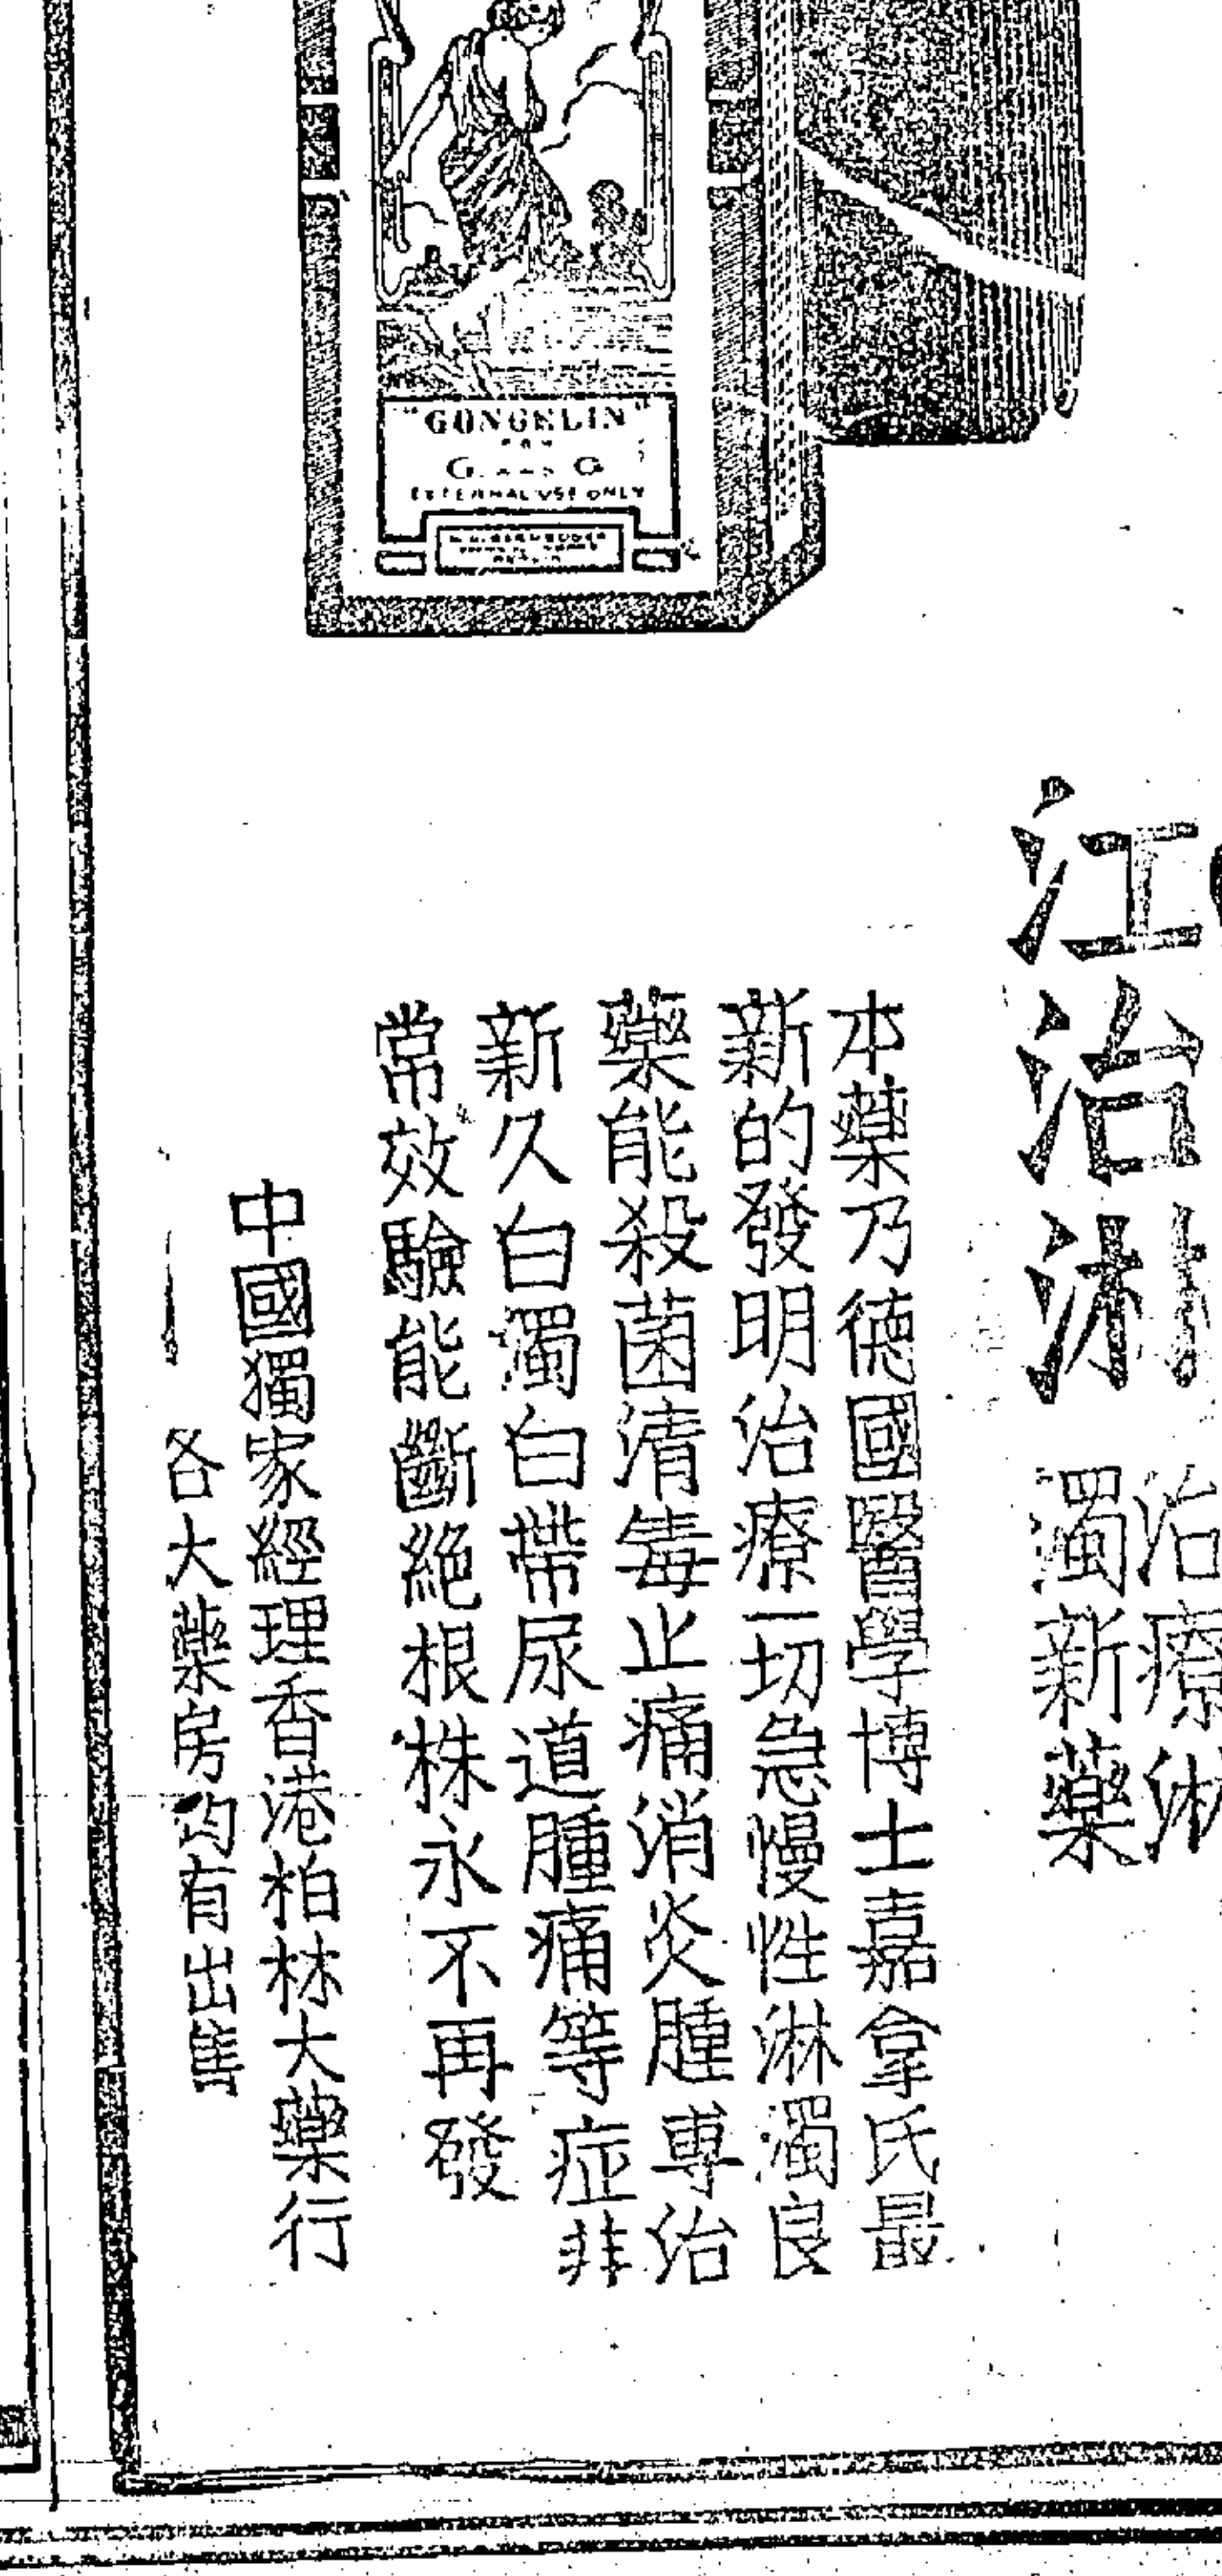 "GONGELIN"
FOR
G. AND G.
EXTERNAL USE ONLY
江治淋
治療淋
濁新藥
本藥乃德國醫學博士嘉拿氏最
新的發明治療一切急慢性淋濁良
藥能殺菌清毒止痛消炎腫專治
新久白濁白帶尿道腫痛等症非
常效驗能斷絕根株永不再發
中國獨家經理香港柏林大藥行
各大藥房均有出售